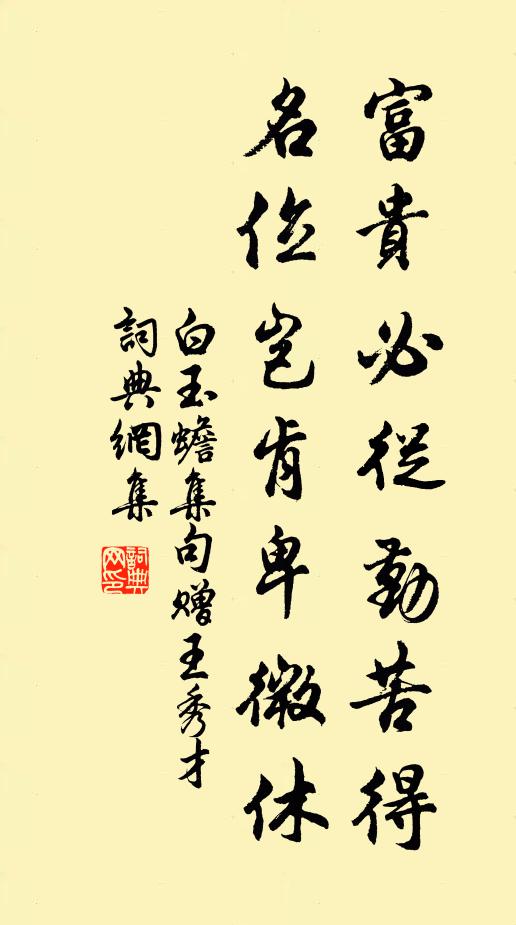 富貴必從勤苦得
名位豈肯卑微休
白玉蟾集句贈王秀才
詞典網集
詞典網印